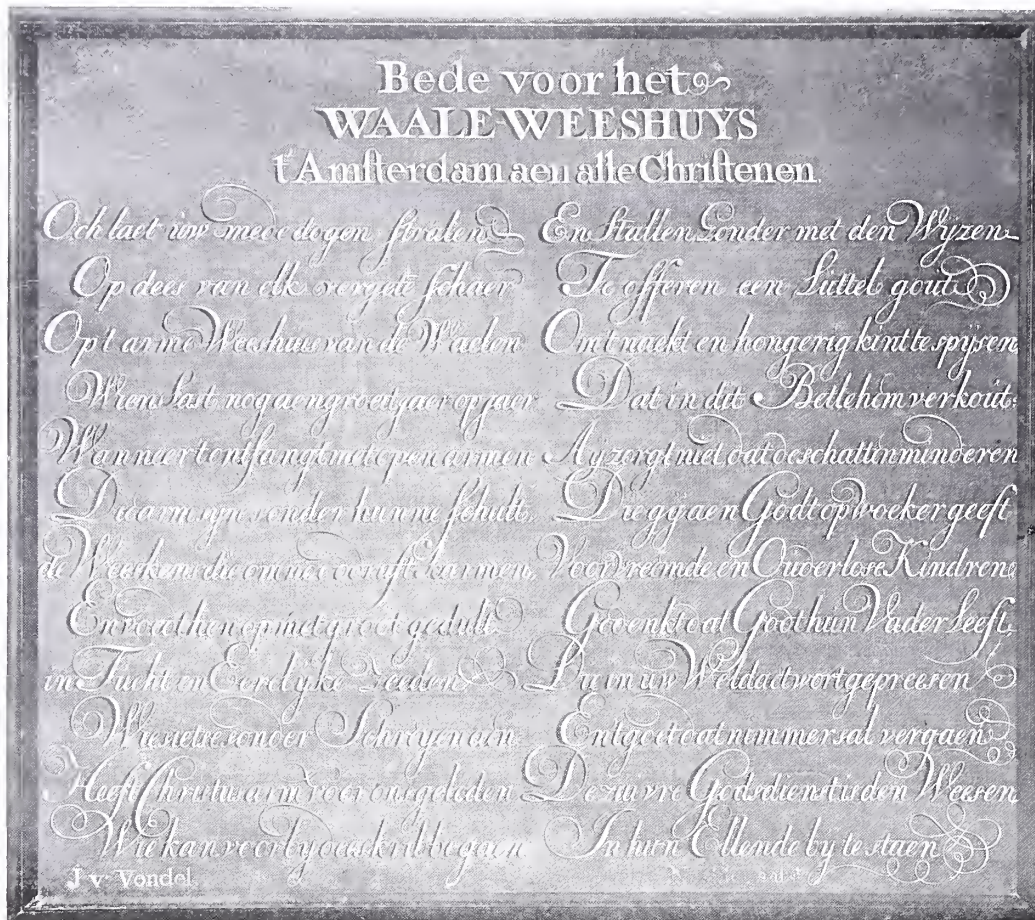 Bede voor het
WAALE-WEESHUYS
t'Amsterdam aen alle Christenen.
Och laet uw mededogen stralen
Op dees van elk vergete schaer
Op t arme Weeshuis van de Waelen
Wiens last nog aengroeit jaer op jaer
Wanneer t ontfangt met open armen
Die arm syn sonder hunne schult.
de Weeskens die om nootdruft karmen,
En voet hen op met groot gedult
in Tucht en Eerelyke Zeeden
Wie siet se sonder Schreyen aen
Heeft Christus arm voor ons geleden
Wie kan voorby dees kribbe gaen
J v. Vondel.
En stallen Zonder met den Wyzen
Te offeren een Luttel gout
Om t naekt en hongerig kint te spysen,
Dat in dit Bethlehem verkout:
Ay zorgt niet dat de schatten minderen
Die gy aen Godt op woeker geeft
Voor vreemde en Ouderlose Kindren
Gedenkt dat Godt hun Vader Leeft,
Du in uw Weldaet wort gepreesen
En tgoet dat nimmer sal vergaen
De zuivre Godsdienst is den Weesen
In hun Ellende by te staen